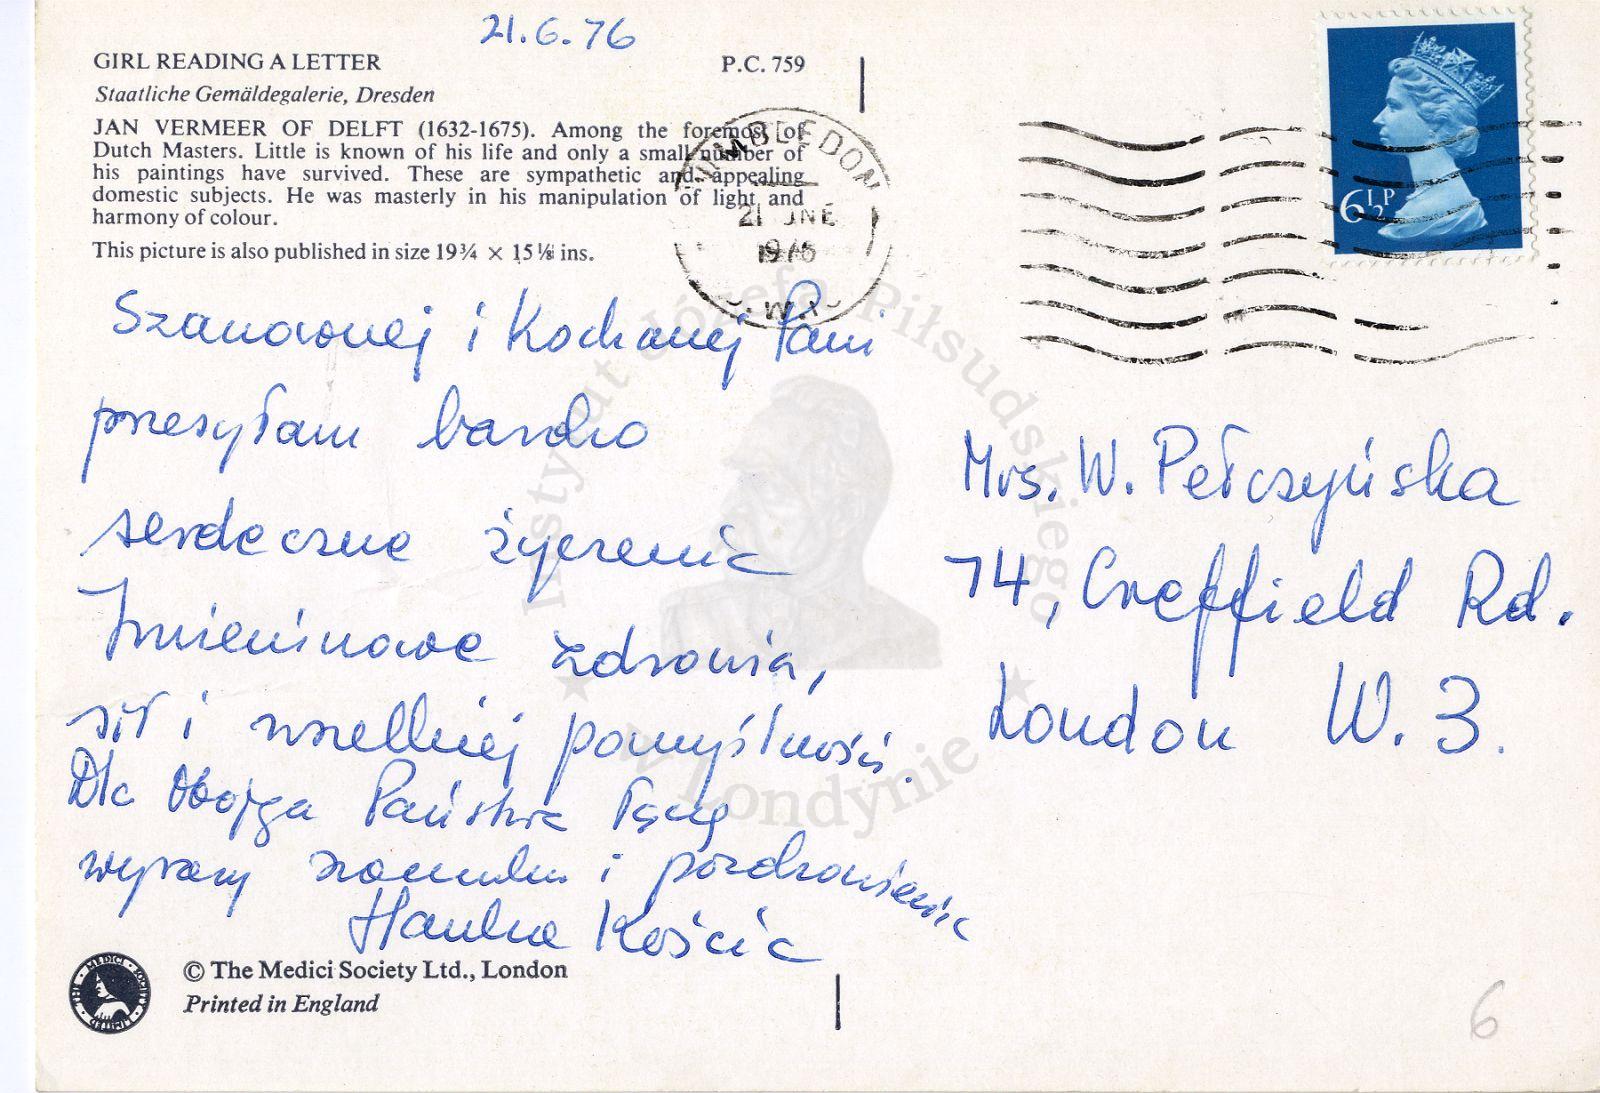 21.6.76
GIRL READING A LETTER P.C. 759
Staatliche Gemäldegalerie, Dresden
JAN VERMEER OF DELFT (1632-1675). Among the foremost of
Dutch Masters. Little is known of his life and only a small number of
his paintings have survived. These are sympathetic and appealing
domestic subjects. He was masterly in his manipulation of light and
harmony of colour.
This picture is also published in size 19¾ × 15⅛ ins.
WIMBLEDON
21 JNE
1976
6½P
Szanownej i Kochanej Pani
przesyłam bardzo
serdeczne życzenia
Imieninowe zdrowia,
sił i wszelkiej pomyślności.
Dla Obojga Państwa łączę
wyrazy szacunku i pozdrowienia
Hanka Kościa
Mrs. W. Pełczyńska
74, Creffield Rd.
London W. 3.
Instytut Józefa Piłsudskiego
w Londynie
THE MEDICI SOCIETY LIMITED
© The Medici Society Ltd., London
Printed in England
6